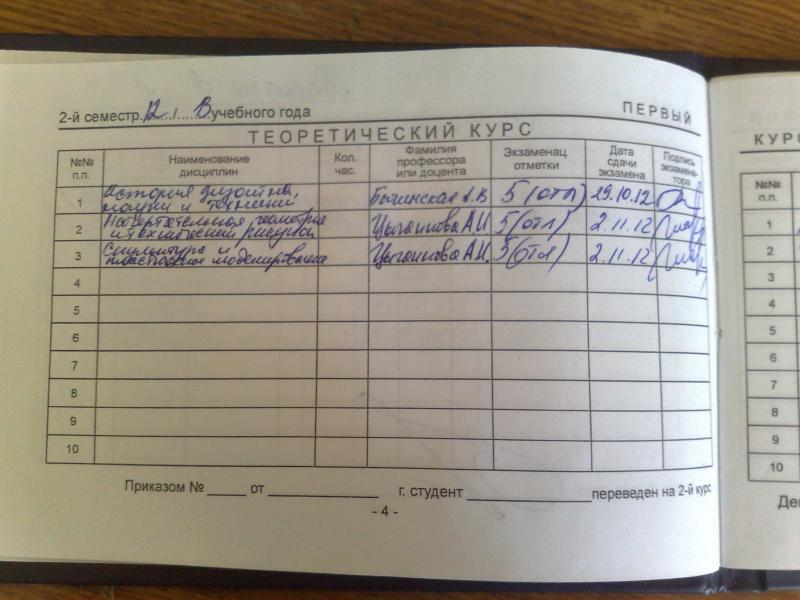 2-й семестр 12 / 13 учебного года
ПЕРВЫЙ
ТЕОРЕТИЧЕСКИЙ КУРС
КУРС
№№ п.п. Наименование дисциплин Кол. час. Фамилия профессора или доцента Экзаменац. отметки Дата сдачи экзамена Подпись экзамена-тора
№№ п.п.
1 История дизайна, науки и техники 5 (отл) 29.10.12
2 Начертательная геометрия и технический рисунок Цыганкова А.И. 5 (отл) 2.11.12
3 Скульптура и пластическое моделирование Цыганкова А.И. 5 (отл) 2.11.12
4
5
6
7
8
9
10
1
2
3
4
5
6
7
8
9
10
Приказом № _____ от ______________ г. студент ________________ переведен на 2-й курс
- 4 -